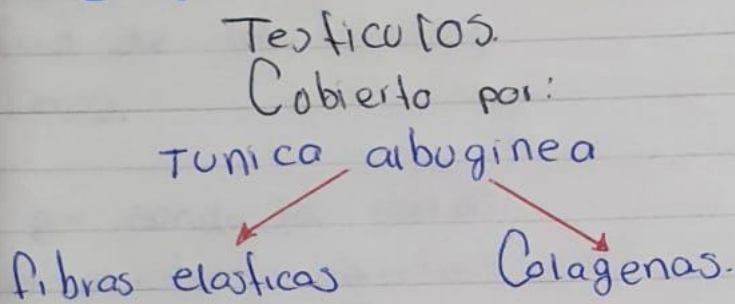 Testiculos.
Cobierto por:
Tunica albuginea
fibras elasticas Colagenas.